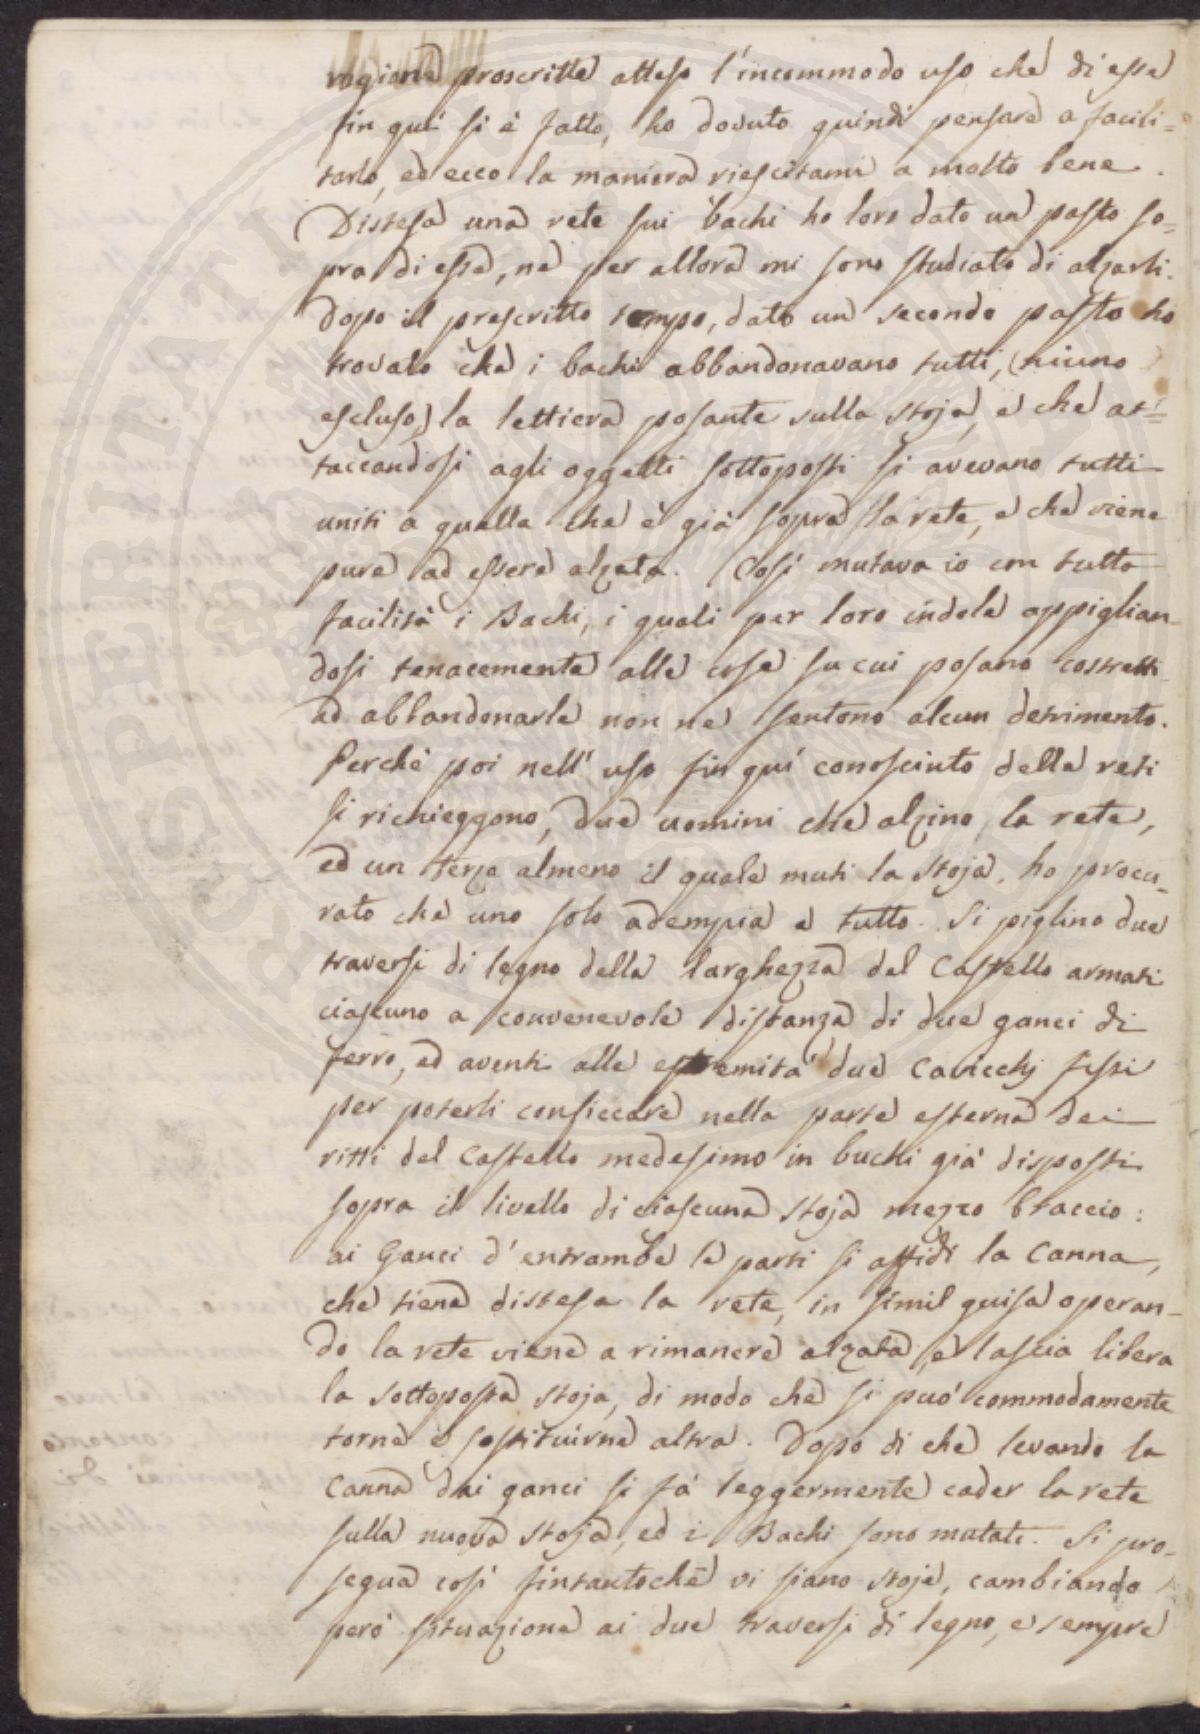 ragione proscritte atteso l'incommodo uso che di esse
fin quì si è fatto, ho dovuto quindi pensare a facili=
tarlo, ed ecco la maniera riescitami a molto bene.
Distesa una rete sui bachi ho loro dato un pasto so=
pra di essa, nè per allora mi sono studiato di alzarli.
Dopo il prescritto tempo, dato un secondo pasto ho
trovato che i bachi abbandonavano tutti, (niuno
escluso) la lettiera posante sulla stoja, e che at=
taccandosi agli oggetti sottoposti si avevano tutti
uniti a quella che è già sopra la rete, e che viene
pure ad essere alzata. Così mutava io con tutta
facilità i Bachi, i quali per loro indole appiglian-
dosi tenacemente alle cose su cui posano costretti
ad abbandonarle non ne sentono alcun detrimento.
Perchè poi nell'uso fin quì conosciuto delle reti
si richieggono, due uomini che alzino la rete,
ed un terzo almeno il quale muti la stoja, ho procu-
rato che uno solo adempia a tutto. Si piglino due
traversi di legno della larghezza del Castello armati
ciascuno a convenevole distanza di due ganci di
ferro, ed aventi alle estremità due Cavicchj fissi
per poterli conficcare nella parte esterna dei
ritti del Castello medesimo in buchi già disposti
sopra il livello di ciascuna stoja mezzo braccio:
ai Ganci d'entrambe le parti si affidi la Canna,
che tiene distesa la rete, in simil guisa operan-
do la rete viene a rimanere alzata, e lascia libera
la sottoposta stoja, di modo che si può commodamente
torne e sostituirne altra. Dopo di che levando la
Canna dai ganci si fà leggermente cader la rete
sulla nuova stoja, ed i Bachi sono mutati. Si pro-
segua così fintantochè vi siano stoje, cambiando
però situazione ai due traversi di legno, e sempre